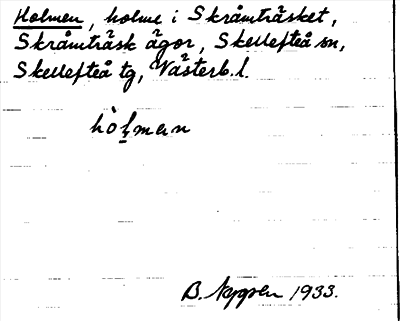 Holmen, holme i Skråmträsket,
Skråmträsk ägor, Skellefteå sn,
Skellefteå tg, Västerb. l.
hòl̥mɐn
B. 1933.